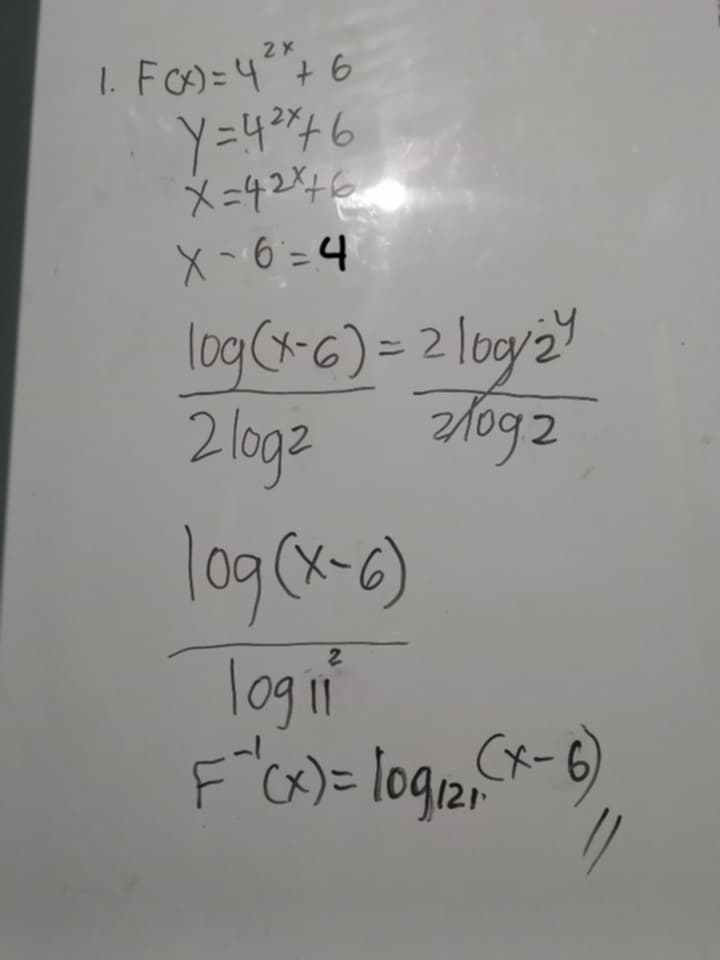 1. F(x)=4^2x + 6
y=4^2x+6
x=42^x+6
x-6=4
log(x-6) = 2log2^y
2log2 2log2
log(x-6)
log11^2
F^-1(x)=log_121.(x-6)//